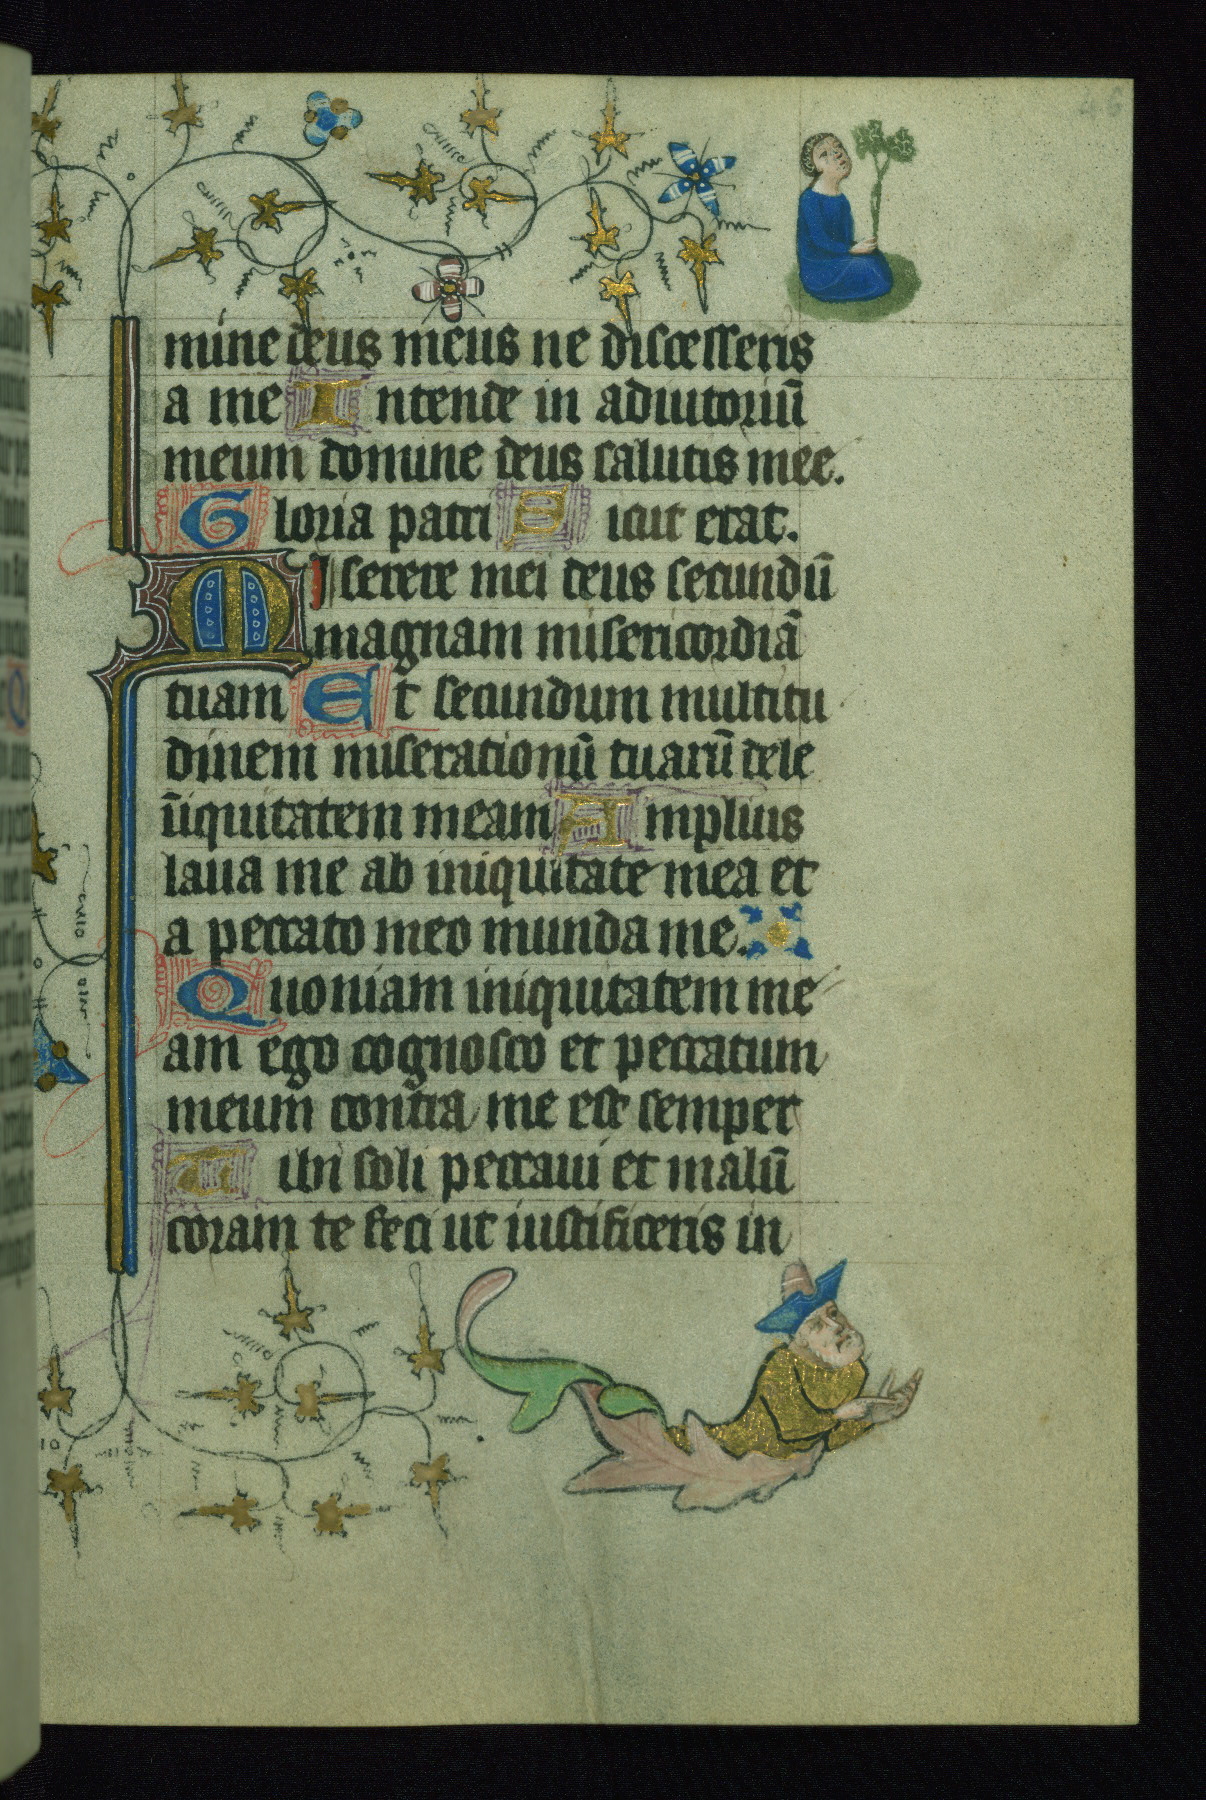 46
mine deus meus ne discesseris
a me Intende in adiutoriū
meum domine deus salutis mee.
Gloria patri Sicut erat.
Miserere mei deus secundū
magnam misericordiā
tuam Et secundum multitu
dinem miserationū tuarū dele
īiquitatem meam Amplius
laua me ab iniquitate mea et
a peccato meo munda me.
Quoniam iniquitatem me
am ego cognosco et peccatum
meum contra me est semper
Tibi soli peccaui et malū
coram te feci ut iustificeris in